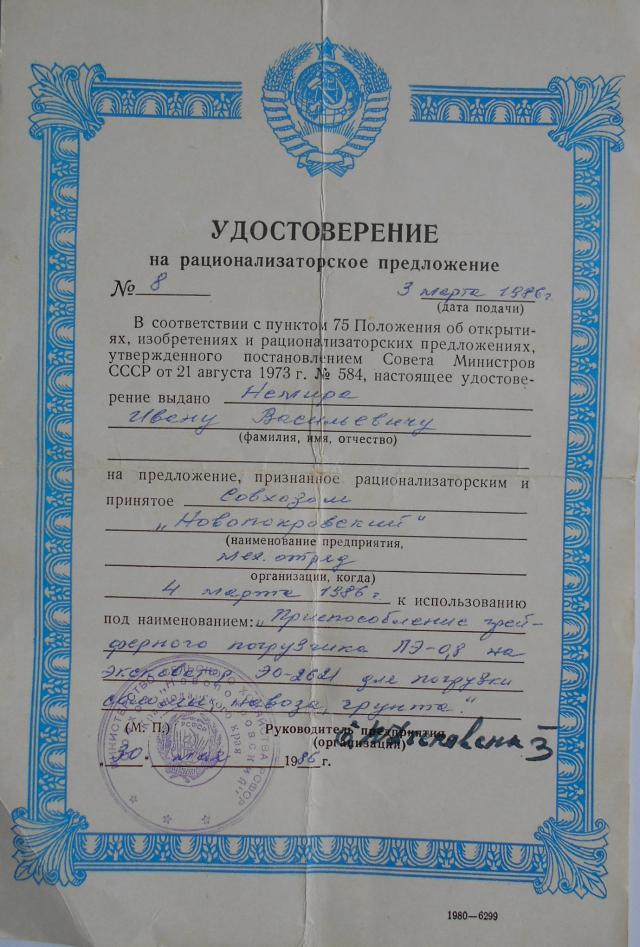 УДОСТОВЕРЕНИЕ
на рационализаторское предложение
№ 8 3 марта 1986 г.
(дата подачи)
В соответствии с пунктом 75 Положения об открыти-
ях, изобретениях и рационализаторских предложениях,
утвержденного постановлением Совета Министров
СССР от 21 августа 1973 г. № 584, настоящее удостове-
рение выдано Немира
Ивану Васильевичу
(фамилия, имя, отчество)
на предложение, признанное рационализаторским и
принятое Совхозом
„Новопокровский"
(наименование предприятия,
мех. отряд
организации, когда)
4 марта 1986 г. к использованию
под наименованием: „Приспособление грей-
ферного погрузчика ПЭ-0,8 на
экскаватор ЭО-2621 для погрузки
навоза, грунта."
(М. П.) Руководитель предприятия
(организации)
30. мая 1986 г.
МИНИСТЕРСТВО СЕЛЬСКОГО ХОЗЯЙСТВА РСФСР
РСФСР
1980—6299